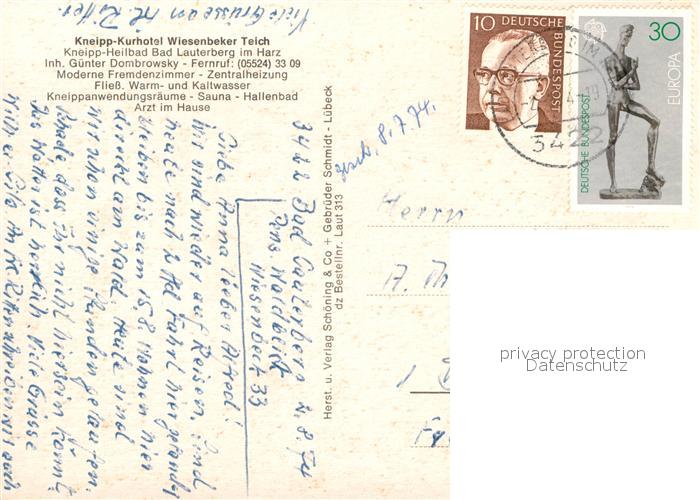 Viele Grüsse am Kl. Ritter.
Kneipp-Kurhotel Wiesenbeker Teich
Kneipp-Heilbad Bad Lauterberg im Harz
Inh. Günter Dombrowsky - Fernruf: (05524) 33 09
Moderne Fremdenzimmer - Zentralheizung
Fließ. Warm- und Kaltwasser
Kneippanwendungsräume - Sauna - Hallenbad
Arzt im Hause
3422 Bad Lauterberg 2.8.74
Pens. Waldblick
Wiesenbeck 33
Liebe Anna lieber Alfred!
Wir sind wieder auf Reisen, sind
heute nach Fahrt hier gelandet
bleiben bis zum 15.8 Wohnen hier
direkt am Wald. Heute sind
wir schon einige Stunden gelaufen.
Schade dass Ihr nicht hiersein könnt.
Das Wetter ist herrlich Viele Grüsse
wir auch
Herst. u. Verlag Schöning & Co + Gebrüder Schmidt - Lübeck
dz Bestellnr. Laut 313
8.7.74.
10
DEUTSCHE BUNDESPOST
30
EUROPA
DEUTSCHE BUNDESPOST
3422
Herrn
A. Th
1
privacy protection
Datenschutz